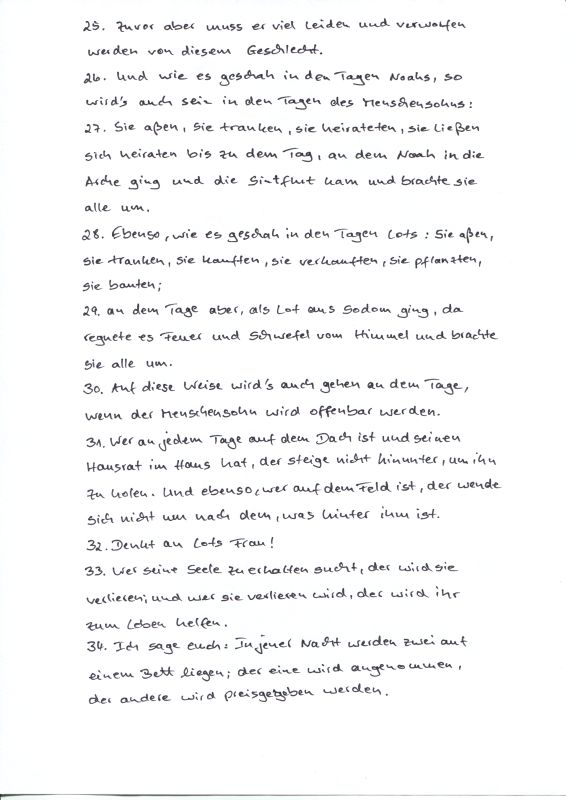 25. Zuvor aber muss er viel leiden und verworfen
werden von diesem Geschlecht.
26. Und wie es geschah in den Tagen Noahs, so
wird's auch sein in den Tagen des Menschensohns:
27. Sie aßen, sie tranken, sie heirateten, sie ließen
sich heiraten bis zu dem Tag, an dem Noah in die
Arche ging und die Sintflut kam und brachte sie
alle um.
28. Ebenso, wie es geschah in den Tagen Lots: Sie aßen,
sie tranken, sie kauften, sie verkauften, sie pflanzten,
sie bauten;
29. an dem Tage aber, als Lot aus Sodom ging, da
regnete es Feuer und Schwefel vom Himmel und brachte
sie alle um.
30. Auf diese Weise wird's auch gehen an dem Tage,
wenn der Menschensohn wird offenbar werden.
31. Wer an jedem Tage auf dem Dach ist und seinen
Hausrat im Haus hat, der steige nicht hinunter, um ihn
zu holen. Und ebenso, wer auf dem Feld ist, der wende
sich nicht um nach dem, was hinter ihm ist.
32. Denkt an Lots Frau!
33. Wer seine Seele zu erhalten sucht, der wird sie
verlieren; und wer sie verlieren wird, der wird ihr
zum Leben helfen.
34. Ich sage euch: In jener Nacht werden zwei auf
einem Bett liegen; der eine wird angenommen,
der andere wird preisgegeben werden.